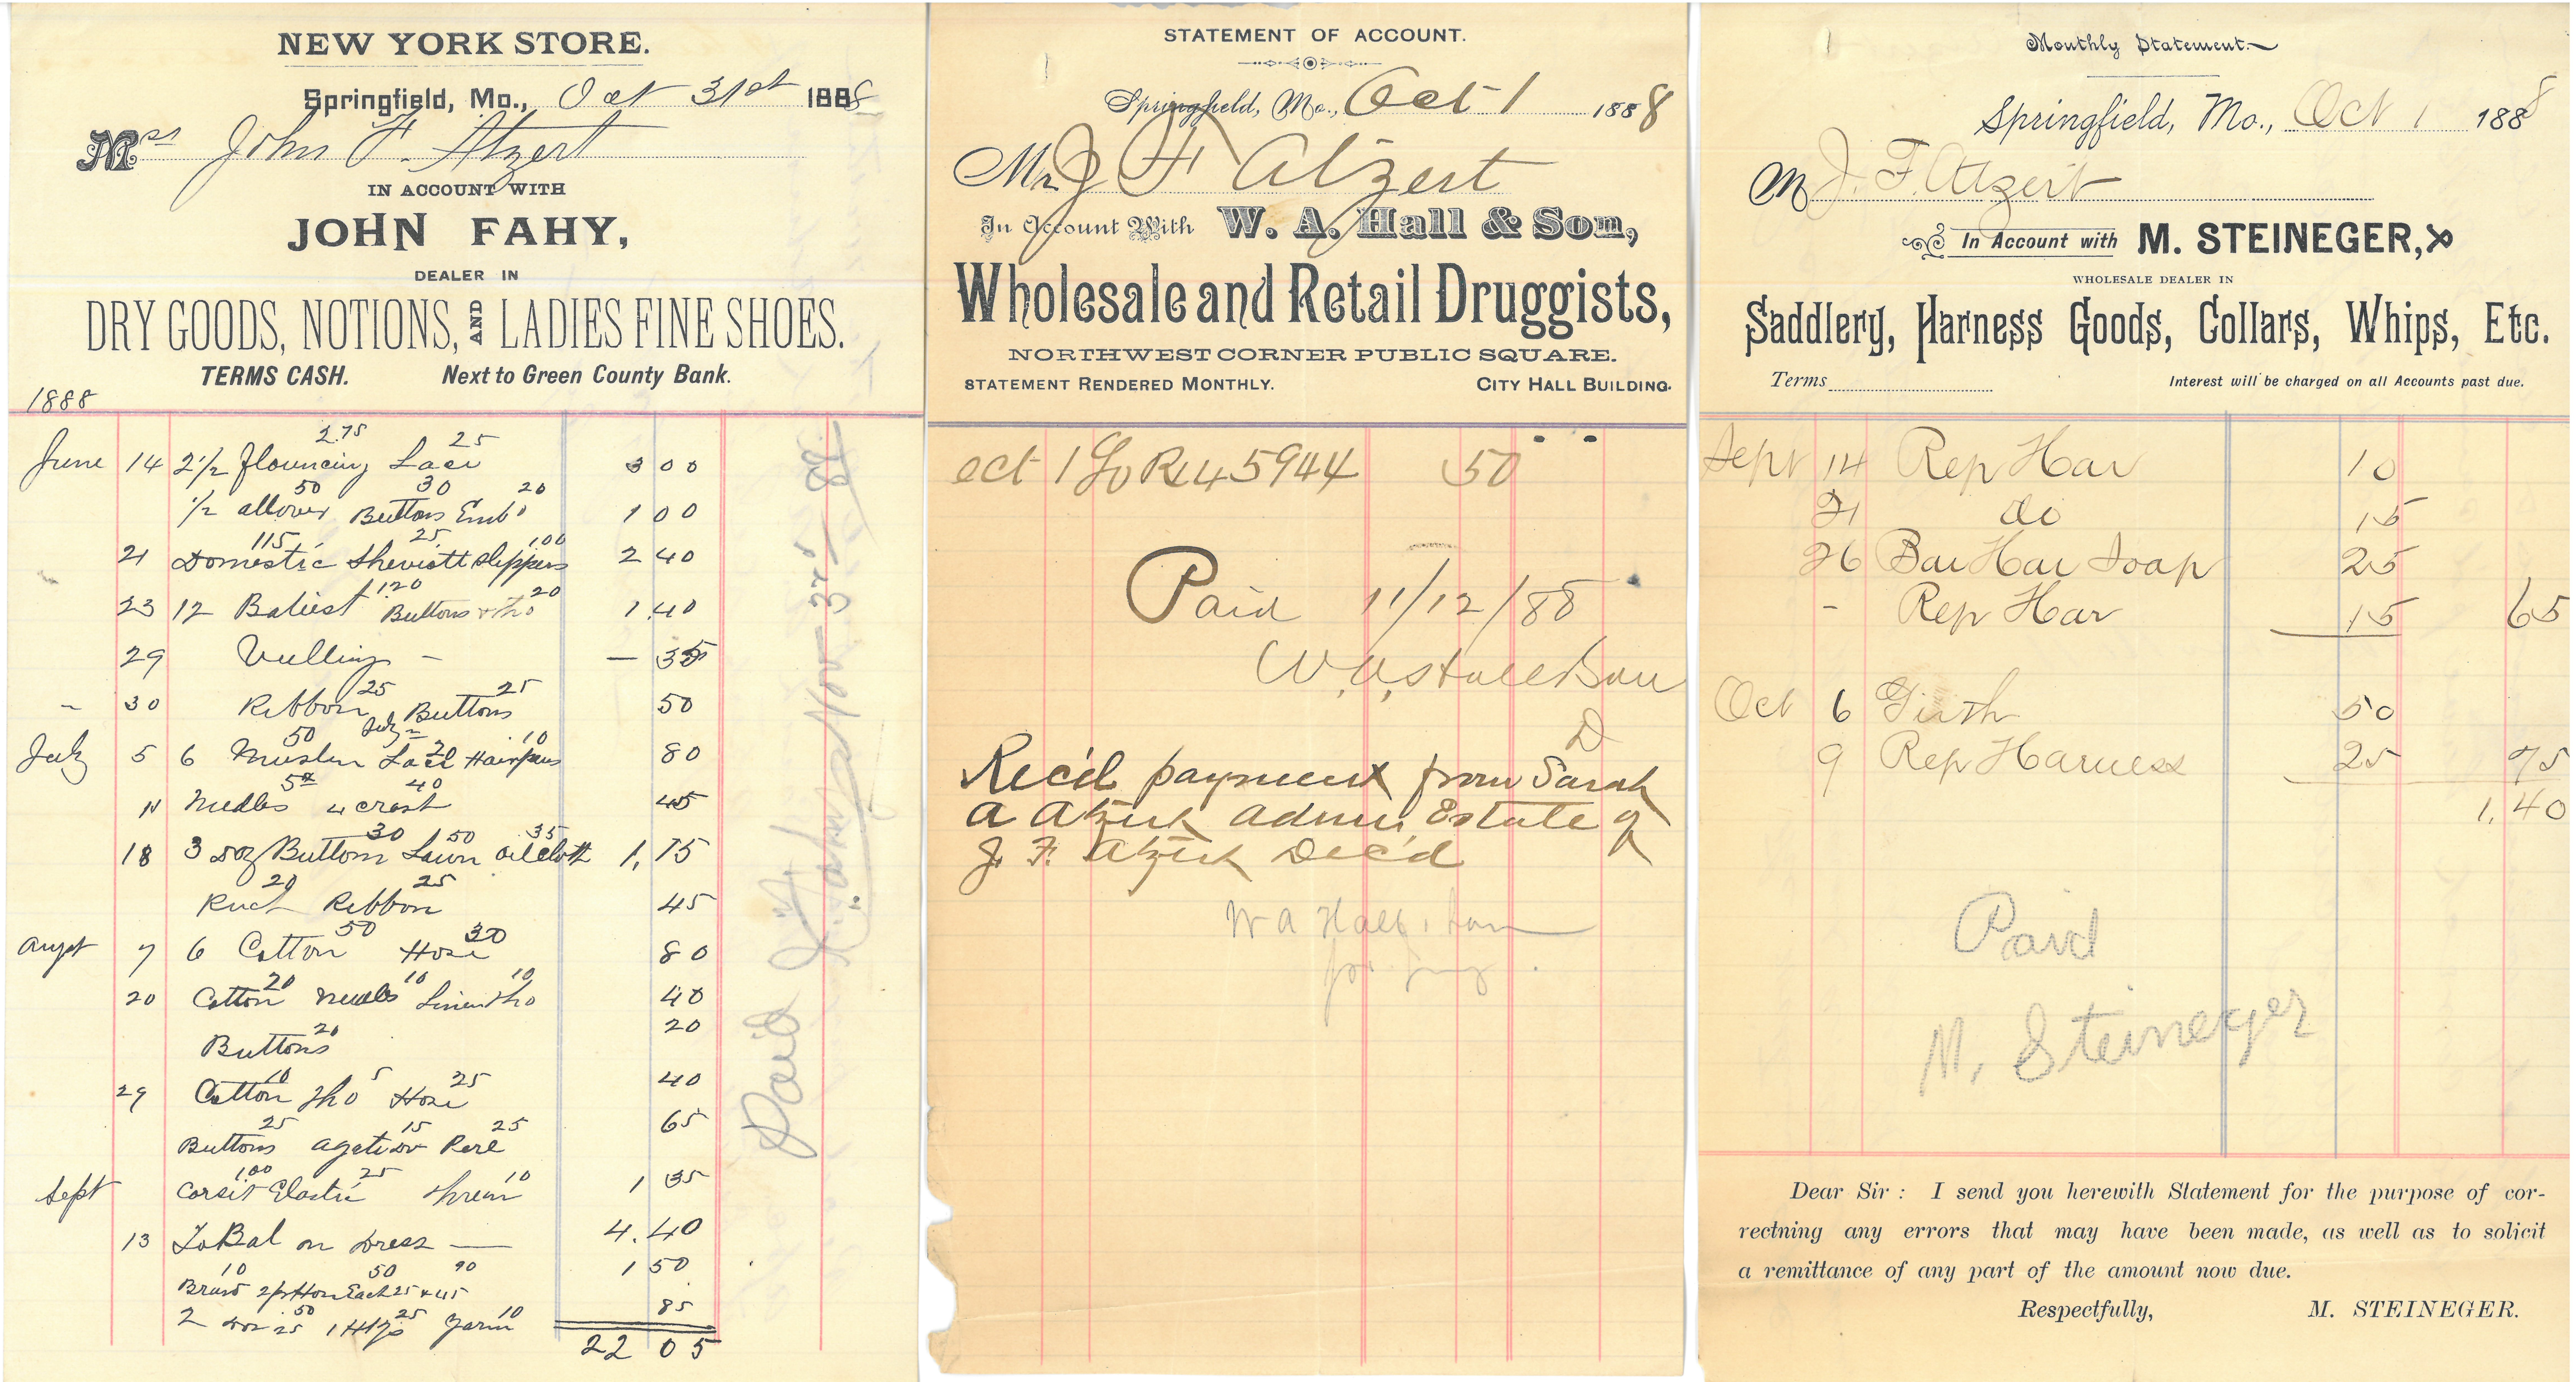 NEW YORK STORE.
Springfield, Mo., Oct 31st 1888
Mrs John F. Atzert
IN ACCOUNT WITH
JOHN FAHY,
DEALER IN
DRY GOODS, NOTIONS, AND LADIES FINE SHOES.
TERMS CASH. Next to Green County Bank.
1888
2.75 25
June 14 2 1/2 flouncing Lace 3 00
50 30 20
1/2 allover Buttons Emb 1 00
115 25 100
21 Domestic Sheviott Slippers 2 40
1.20 20
23 12 Batiest Buttons & Tho 1.40
29 Vulling — — 35
25 25
" 30 Ribbon Buttons 50
50 20 10
July 5 6 Muslin Lace Hairpins 80
5 40
11 Needles 4 45
30 50 35
18 3 doz Buttons Lawn oilcloth 1,15
20 25
Ruch Ribbon 45
50 30
Augst 7 6 Cotton Hose 80
20 10 10
20 Cotton Needles Linen Tho 40
20
Buttons 20
10 5 25
29 Cotton Tho Hose 40
25 15 25
Buttons 65
1.00 25 10
Sept Corset Elastic 1 35
13 To Bal on Dress — 4.40
10 50 90
Braid 2 pr Hose Each 25 & 45 1 50
50 25 10
2 doz 25 Yarn 85
22 05
Paid
John Fahy Nov 3rd 88
STATEMENT OF ACCOUNT.
Springfield, Mo., Oct 1 1888
Mr J F Atzert
In Account With W. A. Hall & Son,
Wholesale and Retail Druggists,
NORTHWEST CORNER PUBLIC SQUARE.
STATEMENT RENDERED MONTHLY. CITY HALL BUILDING.
Oct 1 To Rx 45944 50
Paid 11/12/88
W. A. Hall & Son
D
Rec'd payment from Sarah
A Atzert Admr Estate of
J. F. Atzert Dec'd
W A Hall & Son
Monthly Statement.
Springfield, Mo., Oct 1 1888
M J. F. Atzert
In Account with M. STEINEGER,
WHOLESALE DEALER IN
Saddlery, Harness Goods, Collars, Whips, Etc.
Terms Interest will be charged on all Accounts past due.
Sept 14 Rep Har 10
21 do 15
26 Bar Har Soap 25
- Rep Har 15 65
Oct 6 Girth 50
9 Rep Harness 25 75
1,40
Paid
M. Steineger
Dear Sir: I send you herewith Statement for the purpose of cor-
rectning any errors that may have been made, as well as to solicit
a remittance of any part of the amount now due.
Respectfully, M. STEINEGER.